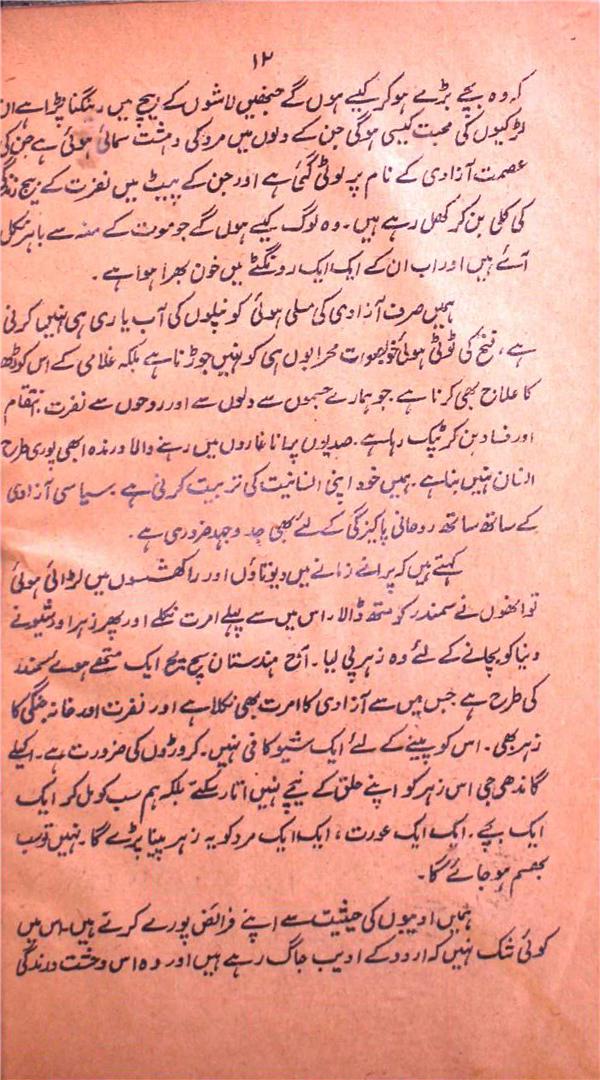 ۱۲
کہ وہ بچے بڑے ہو کر کیسے ہوں گے جنھیں لاشوں کے بیچ میں رینگنا پڑا ہے ان
لڑکیوں کی محبت کیسی ہوگی جن کے دلوں میں مرد کی دہشت سمائی ہوئی ہے جن کی
عصمت آزادی کے نام پر لوٹی گئی ہے اور جن کے پیٹ میں نفرت کے بیج زندگی
کی کلی بن کر کھل رہے ہیں۔ وہ لوگ کیسے ہوں گے جو موت کے منہ سے باہر نکل
آئے ہیں اور اب ان کے ایک ایک رونگٹے میں خون بھرا ہوا ہے۔
ہمیں صرف آزادی کی مسلی ہوئی کونپلوں کی آب یاری ہی نہیں کرنی
ہے، فتح کی ٹوٹی ہوئی خوبصورت محرابوں ہی کو نہیں جوڑنا ہے بلکہ غلامی کے اس کوڑھ
کا علاج بھی کرنا ہے جو ہمارے جسموں سے دلوں سے اور روحوں سے نفرت انتقام
اور فساد بن کر ٹپک رہا ہے۔ صدیوں پرانا غاروں میں رہنے والا درندہ ابھی پوری طرح
انسان نہیں بنا ہے۔ ہمیں خود اپنی انسانیت کی تربیت کرنی ہے۔ سیاسی آزادی
کے ساتھ ساتھ روحانی پاکیزگی کے لئے بھی جد و جہد ضروری ہے۔
کہتے ہیں کہ پرانے زمانے میں دیوتاؤں اور راکھشسوں میں لڑائی ہوئی
تو انھوں نے سمندر کو متھ ڈالا۔ اس میں سے پہلے امرت نکلے اور پھر زہر اور شیو نے
دنیا کو بچانے کے لئے وہ زہر پی لیا۔ آج ہندستان سچ مچ ایک متھے ہوئے سمندر
کی طرح ہے جس میں سے آزادی کا امرت بھی نکلا ہے اور نفرت اور خانہ جنگی کا
زہر بھی۔ اس کو پینے کے لئے ایک شیو کافی نہیں۔ کروڑوں کی ضرورت ہے۔ اکیلے
گاندھی جی اس زہر کو اپنے حلق کے نیچے نہیں اتار سکتے بلکہ ہم سب کو مل کر ایک
ایک بچے۔ ایک ایک عورت، ایک ایک مرد کو یہ زہر پینا پڑے گا۔ نہیں تو سب
بھسم ہو جائے گا۔
ہمیں ادیبوں کی حیثیت سے اپنے فرائض پورے کرتے ہیں۔ اس میں
کوئی شک نہیں کہ اردو کے ادیب جاگ رہے ہیں اور وہ اس وحشت درندگی